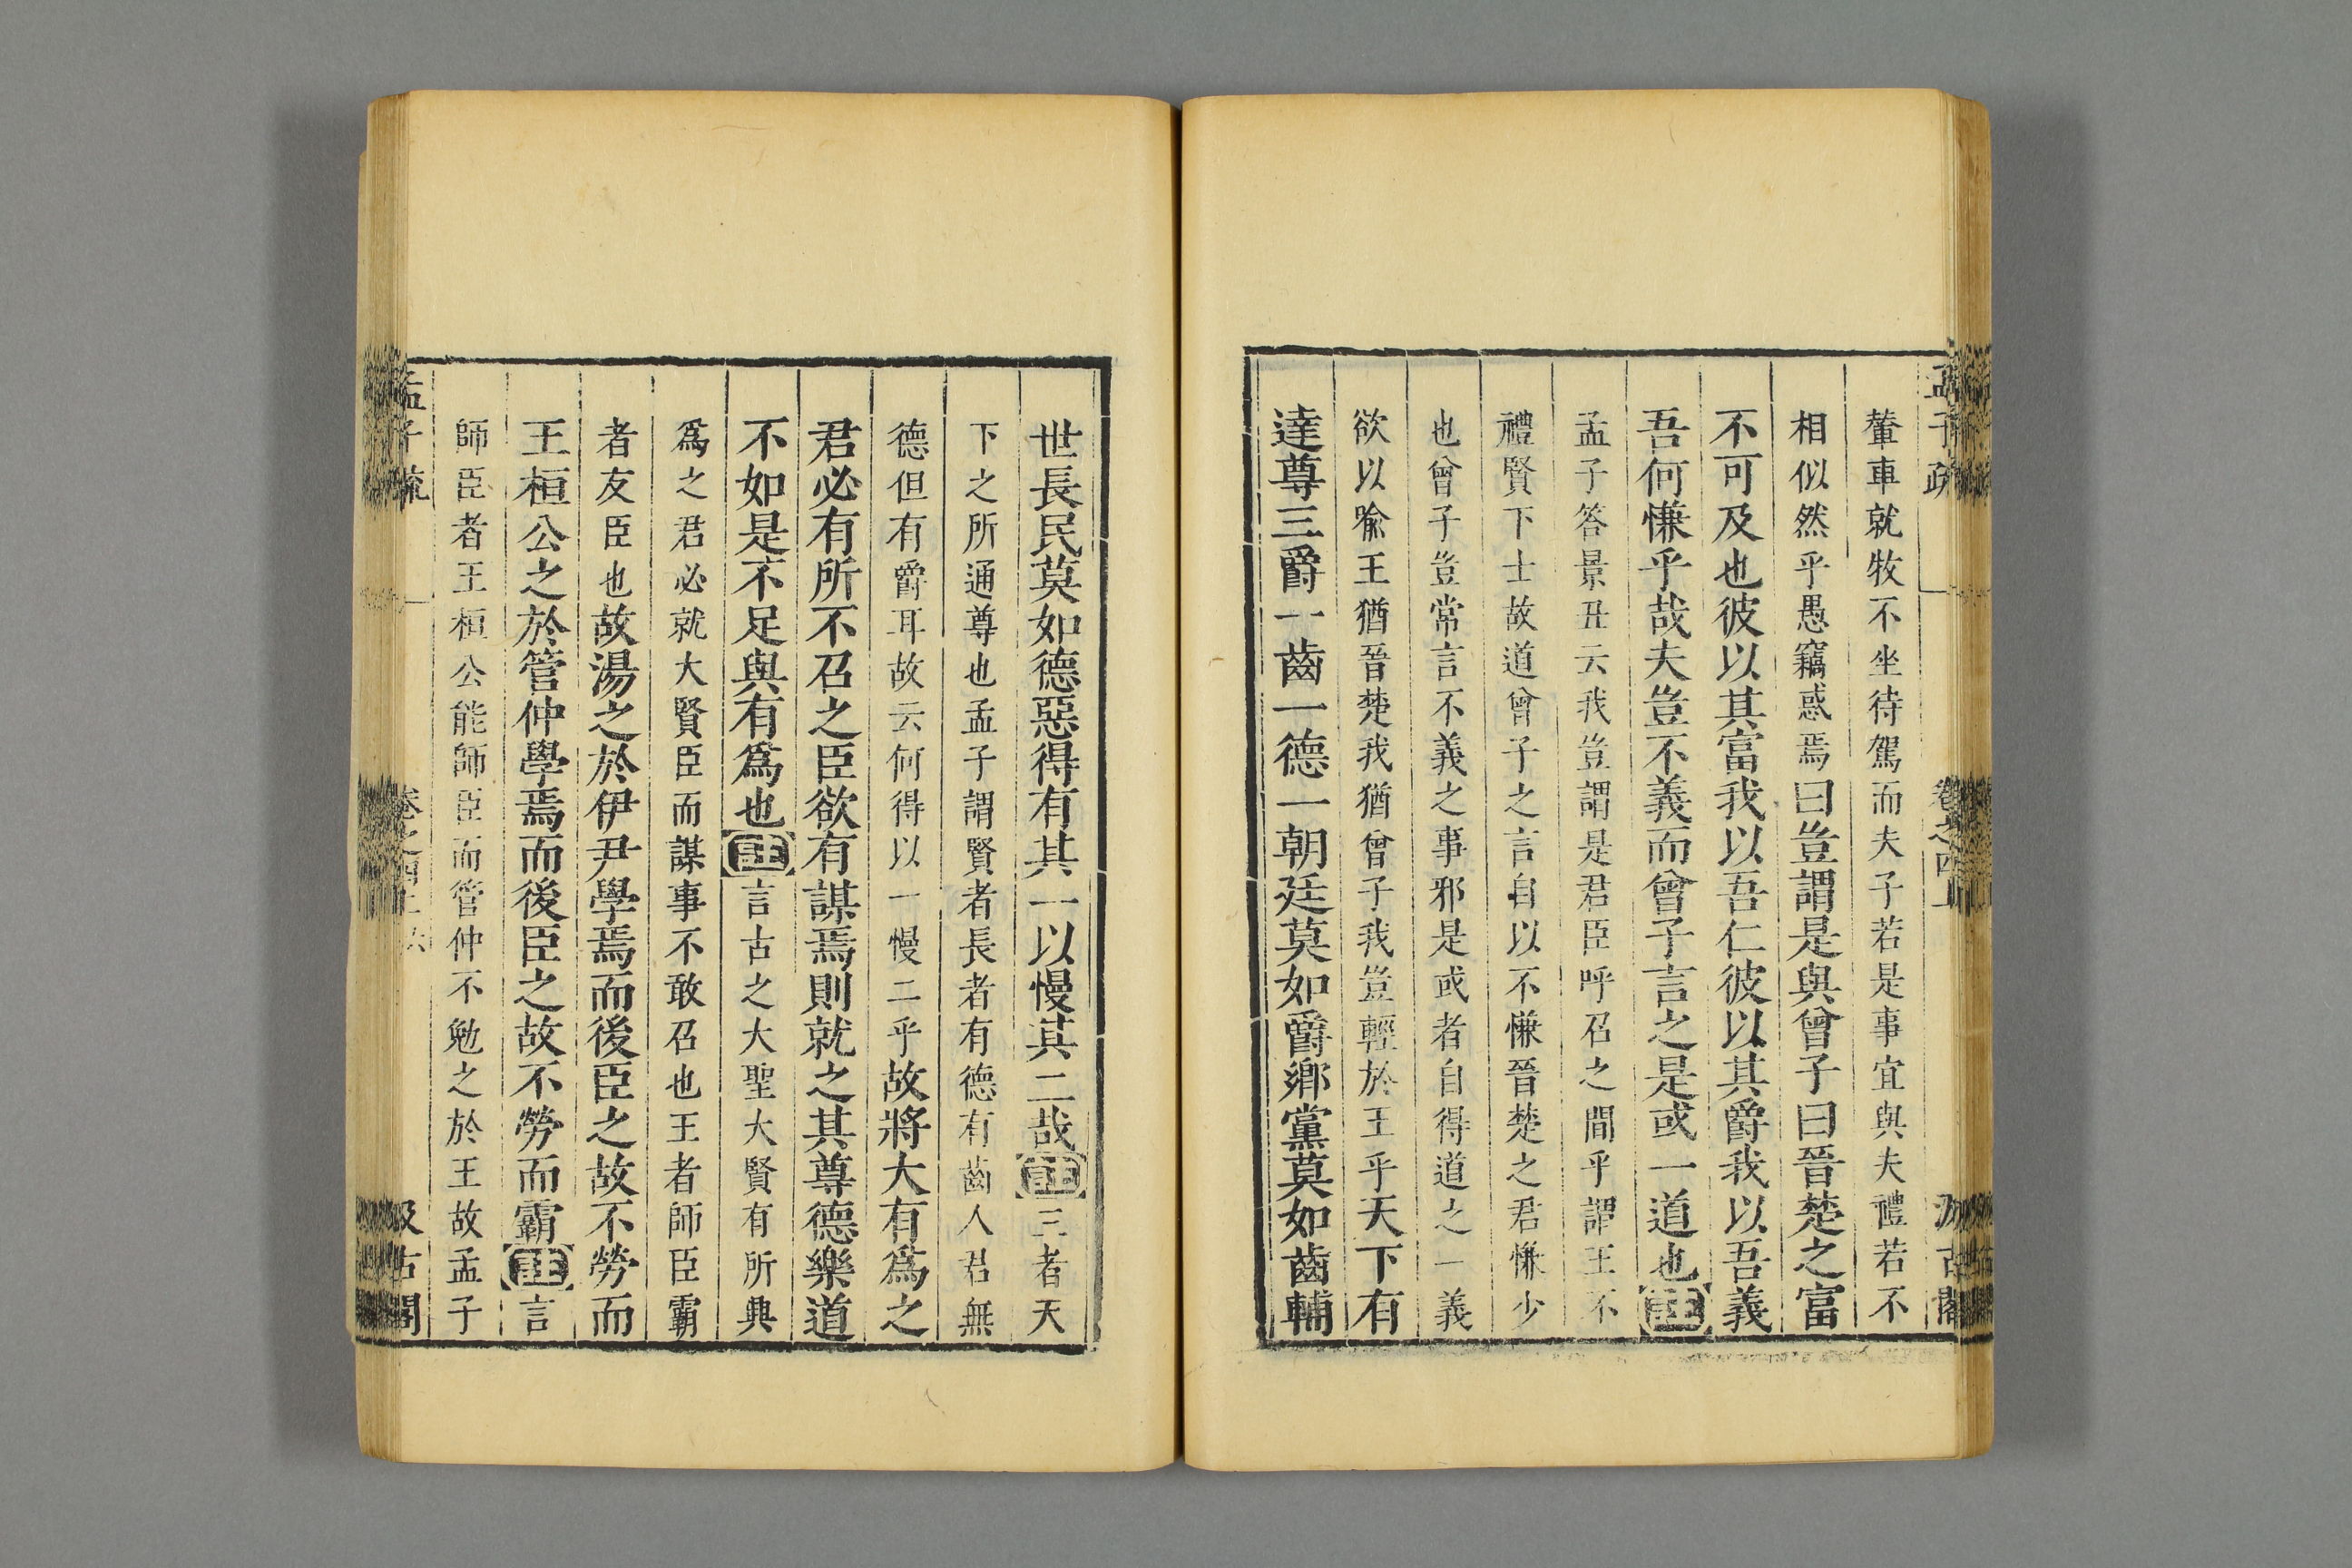 輦車就牧不坐待駕而夫子若是事宜與夫禮若不
相似然乎愚竊惑焉曰豈謂是與曾子曰晉楚之富
不可及也彼以其富我以吾仁彼以其爵我以吾義
吾何慊乎哉夫豈不義而曾子言之是或一道也註
孟子答景丑云我豈謂是君臣呼召之間乎謂王不
禮賢下士故道曾子之言自以不慊晉楚之君慊少
也曾子豈常言不義之事邪是或者自得道之一義
欲以喻王猶晉楚我猶曾子我豈輕於王乎天下有
達尊三爵一齒一德一朝廷莫如爵鄉黨莫如齒輔
世長民莫如德惡得有其一以慢其二哉註三者天
下之所通尊也孟子謂賢者長者有德有齒人君無
德但有爵耳故云何得以一慢二乎故將大有爲之
君必有所不召之臣欲有謀焉則就之其尊德樂道
不如是不足與有爲也註言古之大聖大賢有所興
爲之君必就大賢臣而謀事不敢召也王者師臣霸
者友臣也故湯之於伊尹學焉而後臣之故不勞而
王桓公之於管仲學焉而後臣之故不勞而霸註言
師臣者王桓公能師臣而管仲不勉之於王故孟子
孟子疏
卷之四上
汲古閣